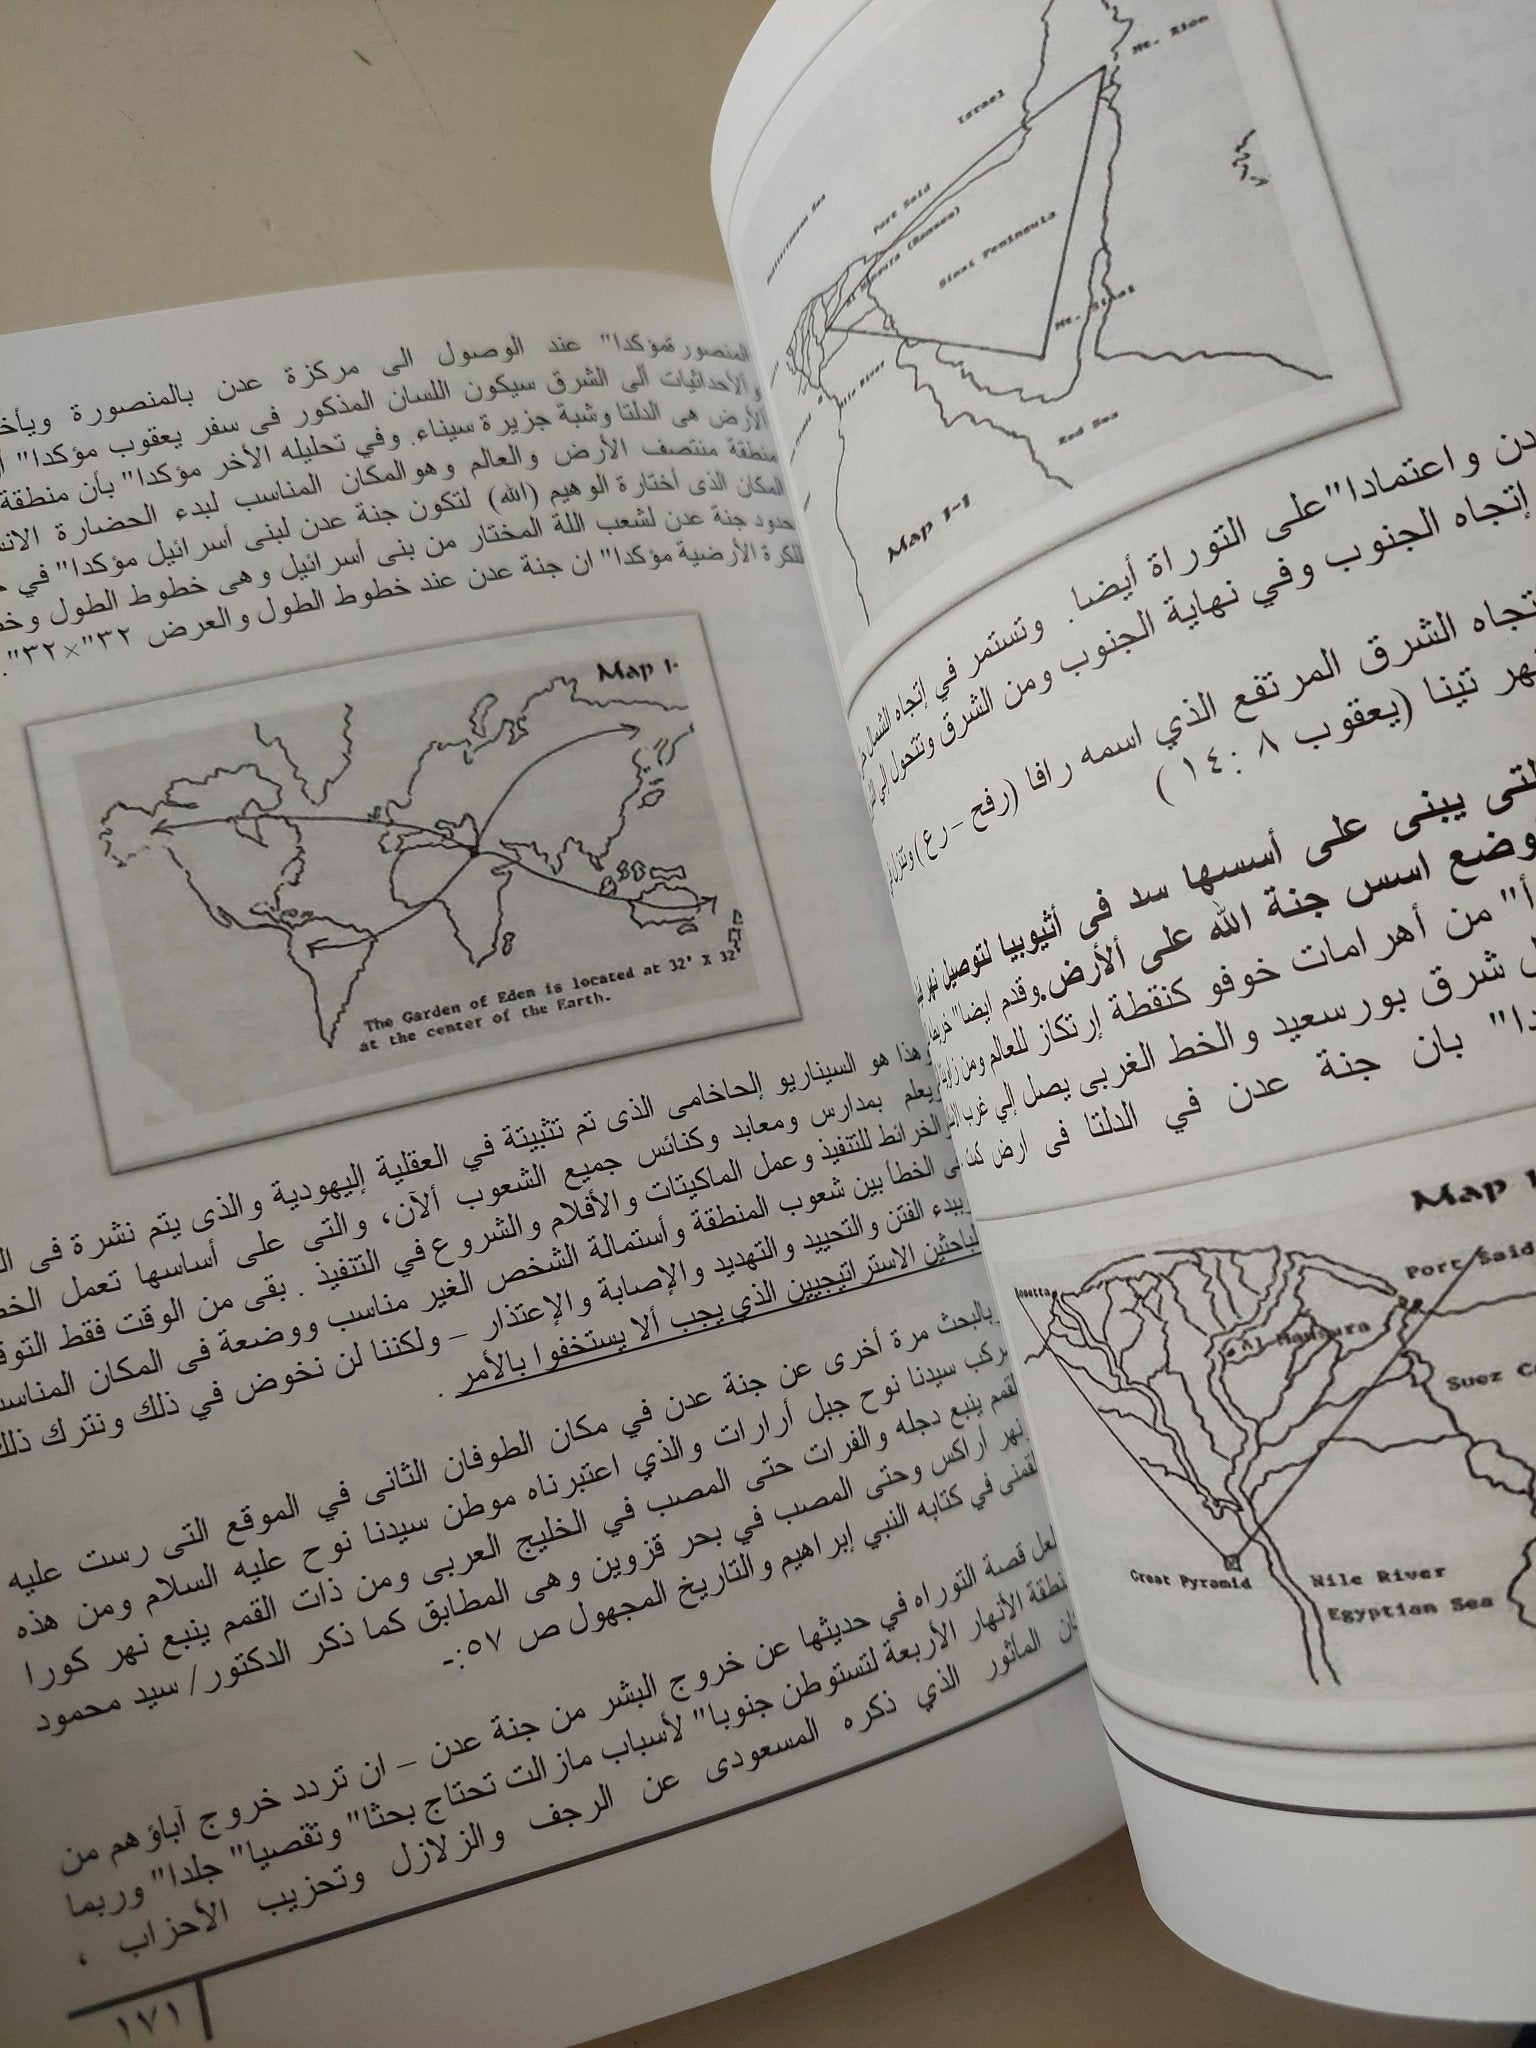 Mt. Zion
Israel
Port Said
Sinai Peninsula
Mt. Sinai
Nile River
Red Sea
Map 1-1
دن واعتمادا" على التوراة أيضا. وتستمر في إتجاه الشمال
إتجاه الجنوب وفي نهاية الجنوب ومن الشرق وتتحول
تجاه الشرق المرتفع الذي اسمه رافا (رفح - رع)
هر تينا (يعقوب ٨ : ١٤)
لتى يبنى على أسسها سد فى أثيوبيا لتوصيل نهر
وضع اسس جنة الله على ألأرض. وقدم ايضا"
أ" من أهرامات خوفو كنقطة إرتكاز للعالم ومن
شرق بورسعيد والخط الغربى يصل إلي غرب
دا" بان جنة عدن في الدلتا فى ارض
Map 1
Port Said
Al Mansura
Suez C
Great Pyramid
Nile River
Egyptian Sea
المنصورة مؤكدا" عند الوصول الى مركزة عدن بالمنصورة ويأخ
والأحداثيات ألى الشرق سيكون اللسان المذكور فى سفر يعقوب مؤكدا"
الأرض هى الدلتا وشبة جزيرة سيناء. وفي تحليله الأخر مؤكدا" بأن منطقة
منطقة منتصف الأرض والعالم وهو المكان المناسب لبدء الحضارة الانس
المكان الذى أختارة الوهيم (الله) لتكون جنة عدن لبنى أسرائيل مؤكدا" في
حدود جنة عدن لشعب اللة المختار من بنى أسرائيل وهى خطوط الطول وخط
للكرة الأرضية مؤكدا" ان جنة عدن عند خطوط الطول والعرض ٣٢"×٣٢".
Map 1-
The Garden of Eden is located at 32' X 32'
at the center of the Earth.
وهذا هو السيناريو إلحاخامى الذى تم تثبيتة في العقلية إليهودية والذى يتم نشرة فى
ويعلم بمدارس ومعابد وكنائس جميع الشعوب ألآن، والتى على أساسها تعمل الخط
الخرائط للتنفيذ وعمل الماكيتات والأفلام والشروع في التنفيذ . بقى من الوقت فقط التوق
الخطأ بين شعوب المنطقة وأستمالة الشخص الغير مناسب ووضعة فى المكان المناسب
وببدء الفتن والتحييد والتهديد والإصابة والإعتذار – ولكننا لن نخوض في ذلك ونترك ذلك
لباحثين الاستراتيجيين الذي يجب ألا يستخفوا بالأمر .
بالبحث مرة أخرى عن جنة عدن في مكان الطوفان الثانى في الموقع التى رست عليه
مركب سيدنا نوح جبل أرارات والذي اعتبرناه موطن سيدنا نوح عليه السلام ومن هذه
القمم ينبع دجله والفرات حتى المصب في الخليج العربى ومن ذات القمم ينبع نهر كورا
نهر أراكس وحتى المصب في بحر قزوين وهى المطابق كما ذكر الدكتور/ سيد محمود
لقمنى في كتابه النبي إبراهيم والتاريخ المجهول ص ٥٧:-
لعل قصة التوراه في حديثها عن خروج البشر من جنة عدن – ان تردد خروج آباؤهم من
نطقة الأنهار الأربعة لتستوطن جنوبا" لأسباب مازالت تحتاج بحثا" وتقصيا" جلدا" وربما
ان الماثور الذي ذكره المسعودى عن الرجف والزلازل وتحزيب الأحزاب ،
١٧١